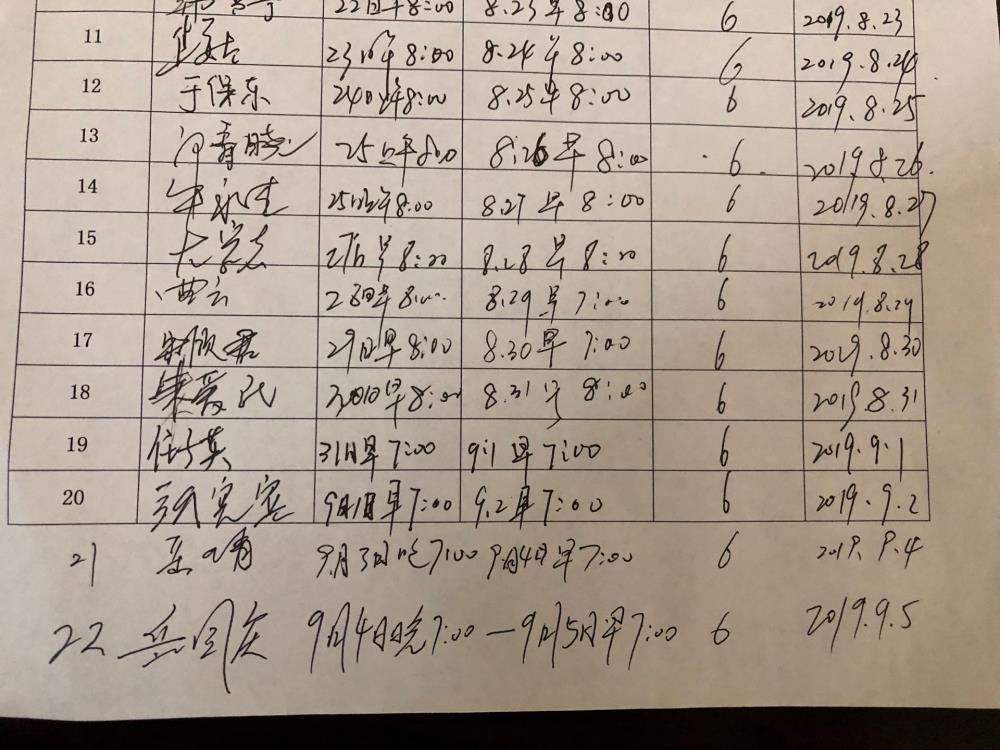 22日早8:00 8.23早8:00 6 2019.8.23
11 23日8:00 8.24早8:00 6 2019.8.24
12 于保东 24日8:00 8.25早8:00 6 2019.8.25
13 25日早8:00 8.26早8:00 6 2019.8.26
14 牛永生 25日8:00 8.27早8:00 6 2019.8.27
15 27日早8:00 8.28早8:00 6 2019.8.28
16 曹云 28日早8:00 8.29早7:00 6 2019.8.29
17 29日早8:00 8.30早7:00 6 2019.8.30
18 30日早8:00 8.31早8:00 6 2019.8.31
19 31日早7:00 9.1早7:00 6 2019.9.1
20 9月1日早7:00 9.2早7:00 6 2019.9.2
21 9月3日晚7:00 9月4日早7:00 6 2019.9.4
22 岳国庆 9月4日晚7:00—9月5日早7:00 6 2019.9.5